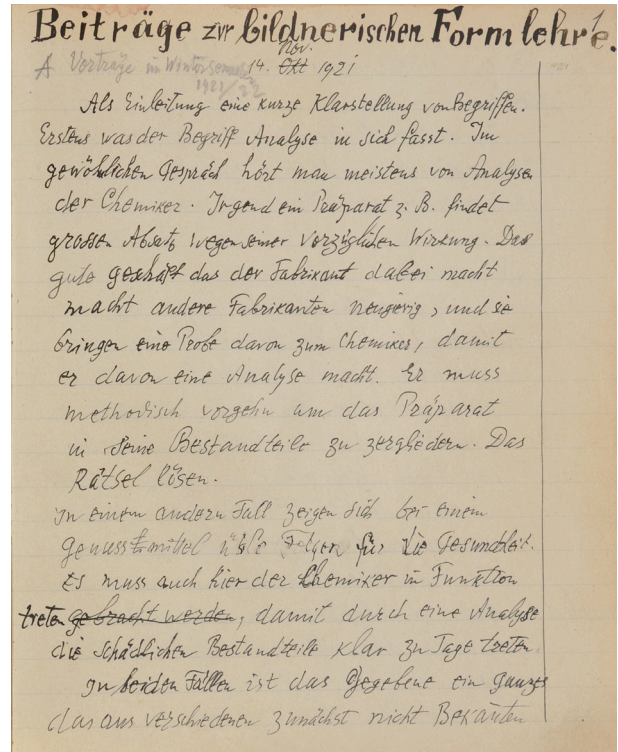 Beiträge zur bildnerischen Formlehre.
A Vorträge im Wintersem 14. Okt Nov. 1921
1921/22
Als Einleitung eine kurze Klarstellung von Begriffen.
Erstens was der Begriff Analyse in sich fasst. Im
gewöhlichen Gespräch hört man meistens von Analysen
der Chemiker. Irgend ein Präparat z. B. findet
grossen Absatz wegen seiner vorzüglichen Wirkung. Das
gute geschäft das der Fabrikant dabei macht
macht andere Fabrikanten neugierig, und sie
bringen eine Probe davon zum Chemiker, damit
er davon eine Analyse macht. Er muss
methodisch vorgehn um das Präparat
in seine Bestandteile zu zergliedern. Das
Rätsel lösen.
In einem andern Fall zeigen sich bei einem
Genussmittel üble Folgen für die Gesundheit.
Es muss auch hier der Chemiker in Funktion
treten gebracht werden, damit durch eine Analyse
die schädlichen Bestandteile klar zu Tage treten.
In beiden Fällen ist das Gegebene ein ganzes
das aus verschiedenen zunächst nicht Bekannten